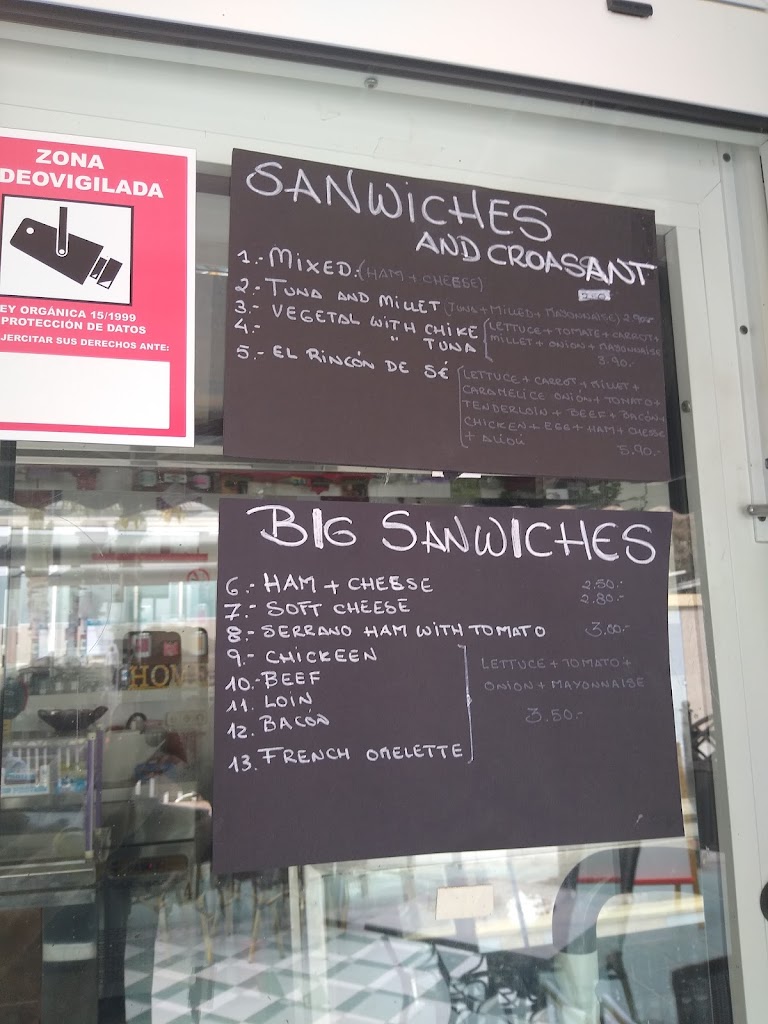 ZONA
DEOVIGILADA
EY ORGÁNICA 15/1999
PROTECCIÓN DE DATOS
JERCITAR SUS DERECHOS ANTE:
SANWICHES
AND CROASSANT
1.- MIXED. (HAM + CHEESE)
2.- TUNA AND MILLET (TUNA + MILLED + MAYONNAISE)
3.- VEGETAL WITH CHIKE
4.- " TUNA
LETTUCE + TOMATE + CARROT +
MILLET + ONION + MAYONNAISE
3.90.-
5.- EL RINCÓN DE SÉ
LETTUCE + CARROT + MILLET +
CARAMELICE ONIÓN + TOMATO +
TENDERLOIN + BEEF + BACÓN +
CHICKEN + EGG + HAM + CHESSE
+ ALIOLI
5.90.-
BIG SANWICHES
6.- HAM + CHEESE 2.50.-
7.- SOFT CHEESE 2.80.-
8.- SERRANO HAM WITH TOMATO 3.00.-
9.- CHICKEEN
10.- BEEF
11. LOIN
12. BACÓN
13. FRENCH OMELETTE
LETTUCE + TOMATO +
ONION + MAYONNAISE
3.50.-
HOME